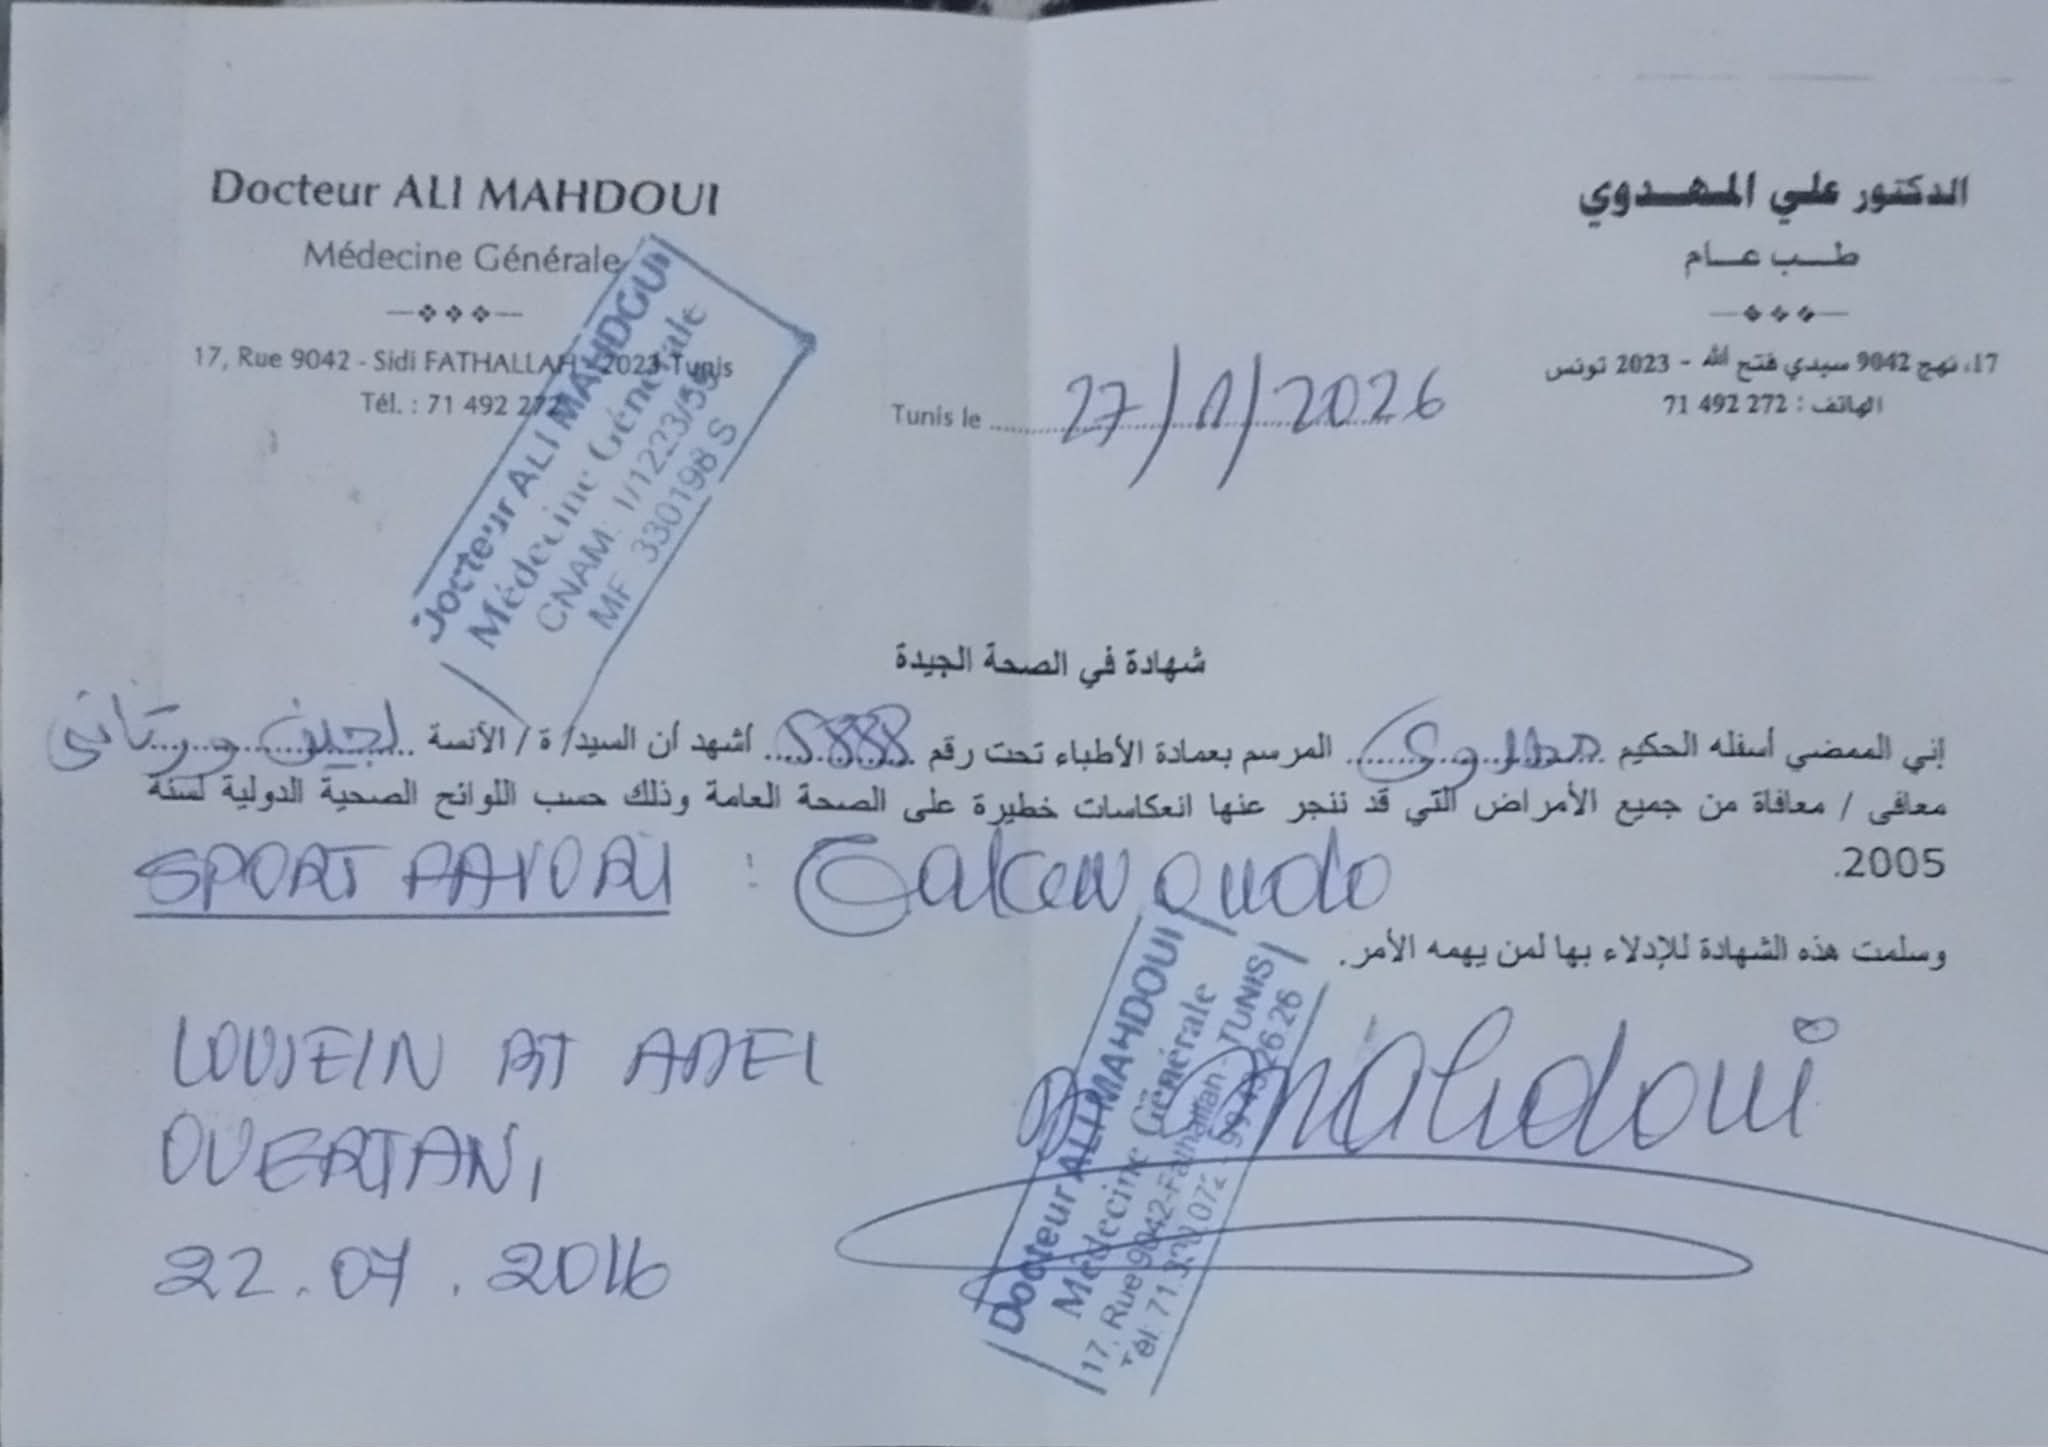 Docteur ALI MAHDOUI
Médecine Générale
17, Rue 9042 - Sidi FATHALLAH - 2023 Tunis
Tél. : 71 492 272
الدكتور علي المهدوي
طب عام
17، نهج 9042 سيدي فتح الله - 2023 تونس
الهاتف : 272 492 71
Tunis le 27/1/2026
Docteur ALI MAHDOUI
Médecine Générale
CNAM: 1/1223/59
MF 330198 S
شهادة في الصحة الجيدة
إني الممضي أسفله الحكيم المرسم بعمادة الأطباء تحت رقم أشهد أن السيد/ ة / الأنسة لجين ورتاني
معافى / معافاة من جميع الأمراض التي قد ننجر عنها انعكاسات خطيرة على الصحة العامة وذلك حسب اللوائح الصحية الدولية لسنة
2005.
SPORT
وسلمت هذه الشهادة للإدلاء بها لمن يهمه الأمر.
LOUJEIN BT ADEL
OUERTANI
22.07.2016
Mahdoui
Docteur ALI MAHDOUI
Médecine Générale
17, Rue 9042-Fathallah - TUNIS